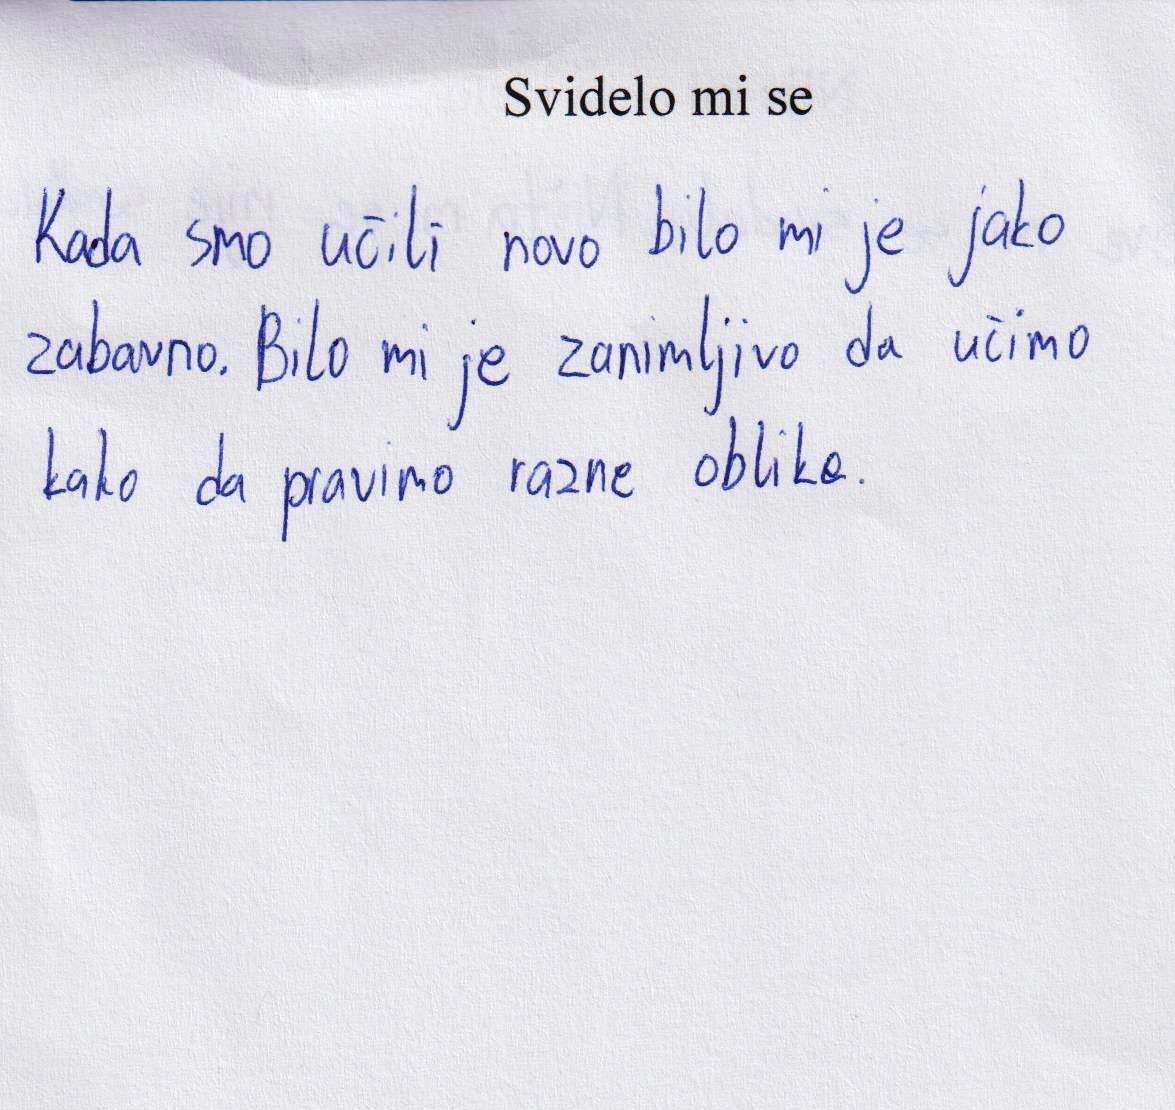 Svidelo mi se
Kada smo učili novo bilo mi je jako
zabavno. Bilo mi je zanimljivo da učimo
kako da pravimo razne oblike.